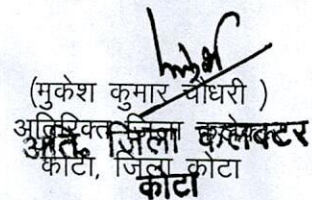 (मुकेश कुमार चौधरी )
अतिरिक्त जिला कलेक्टर
अति. जिला कलक्टर
कोटा, जिला कोटा
कोटा